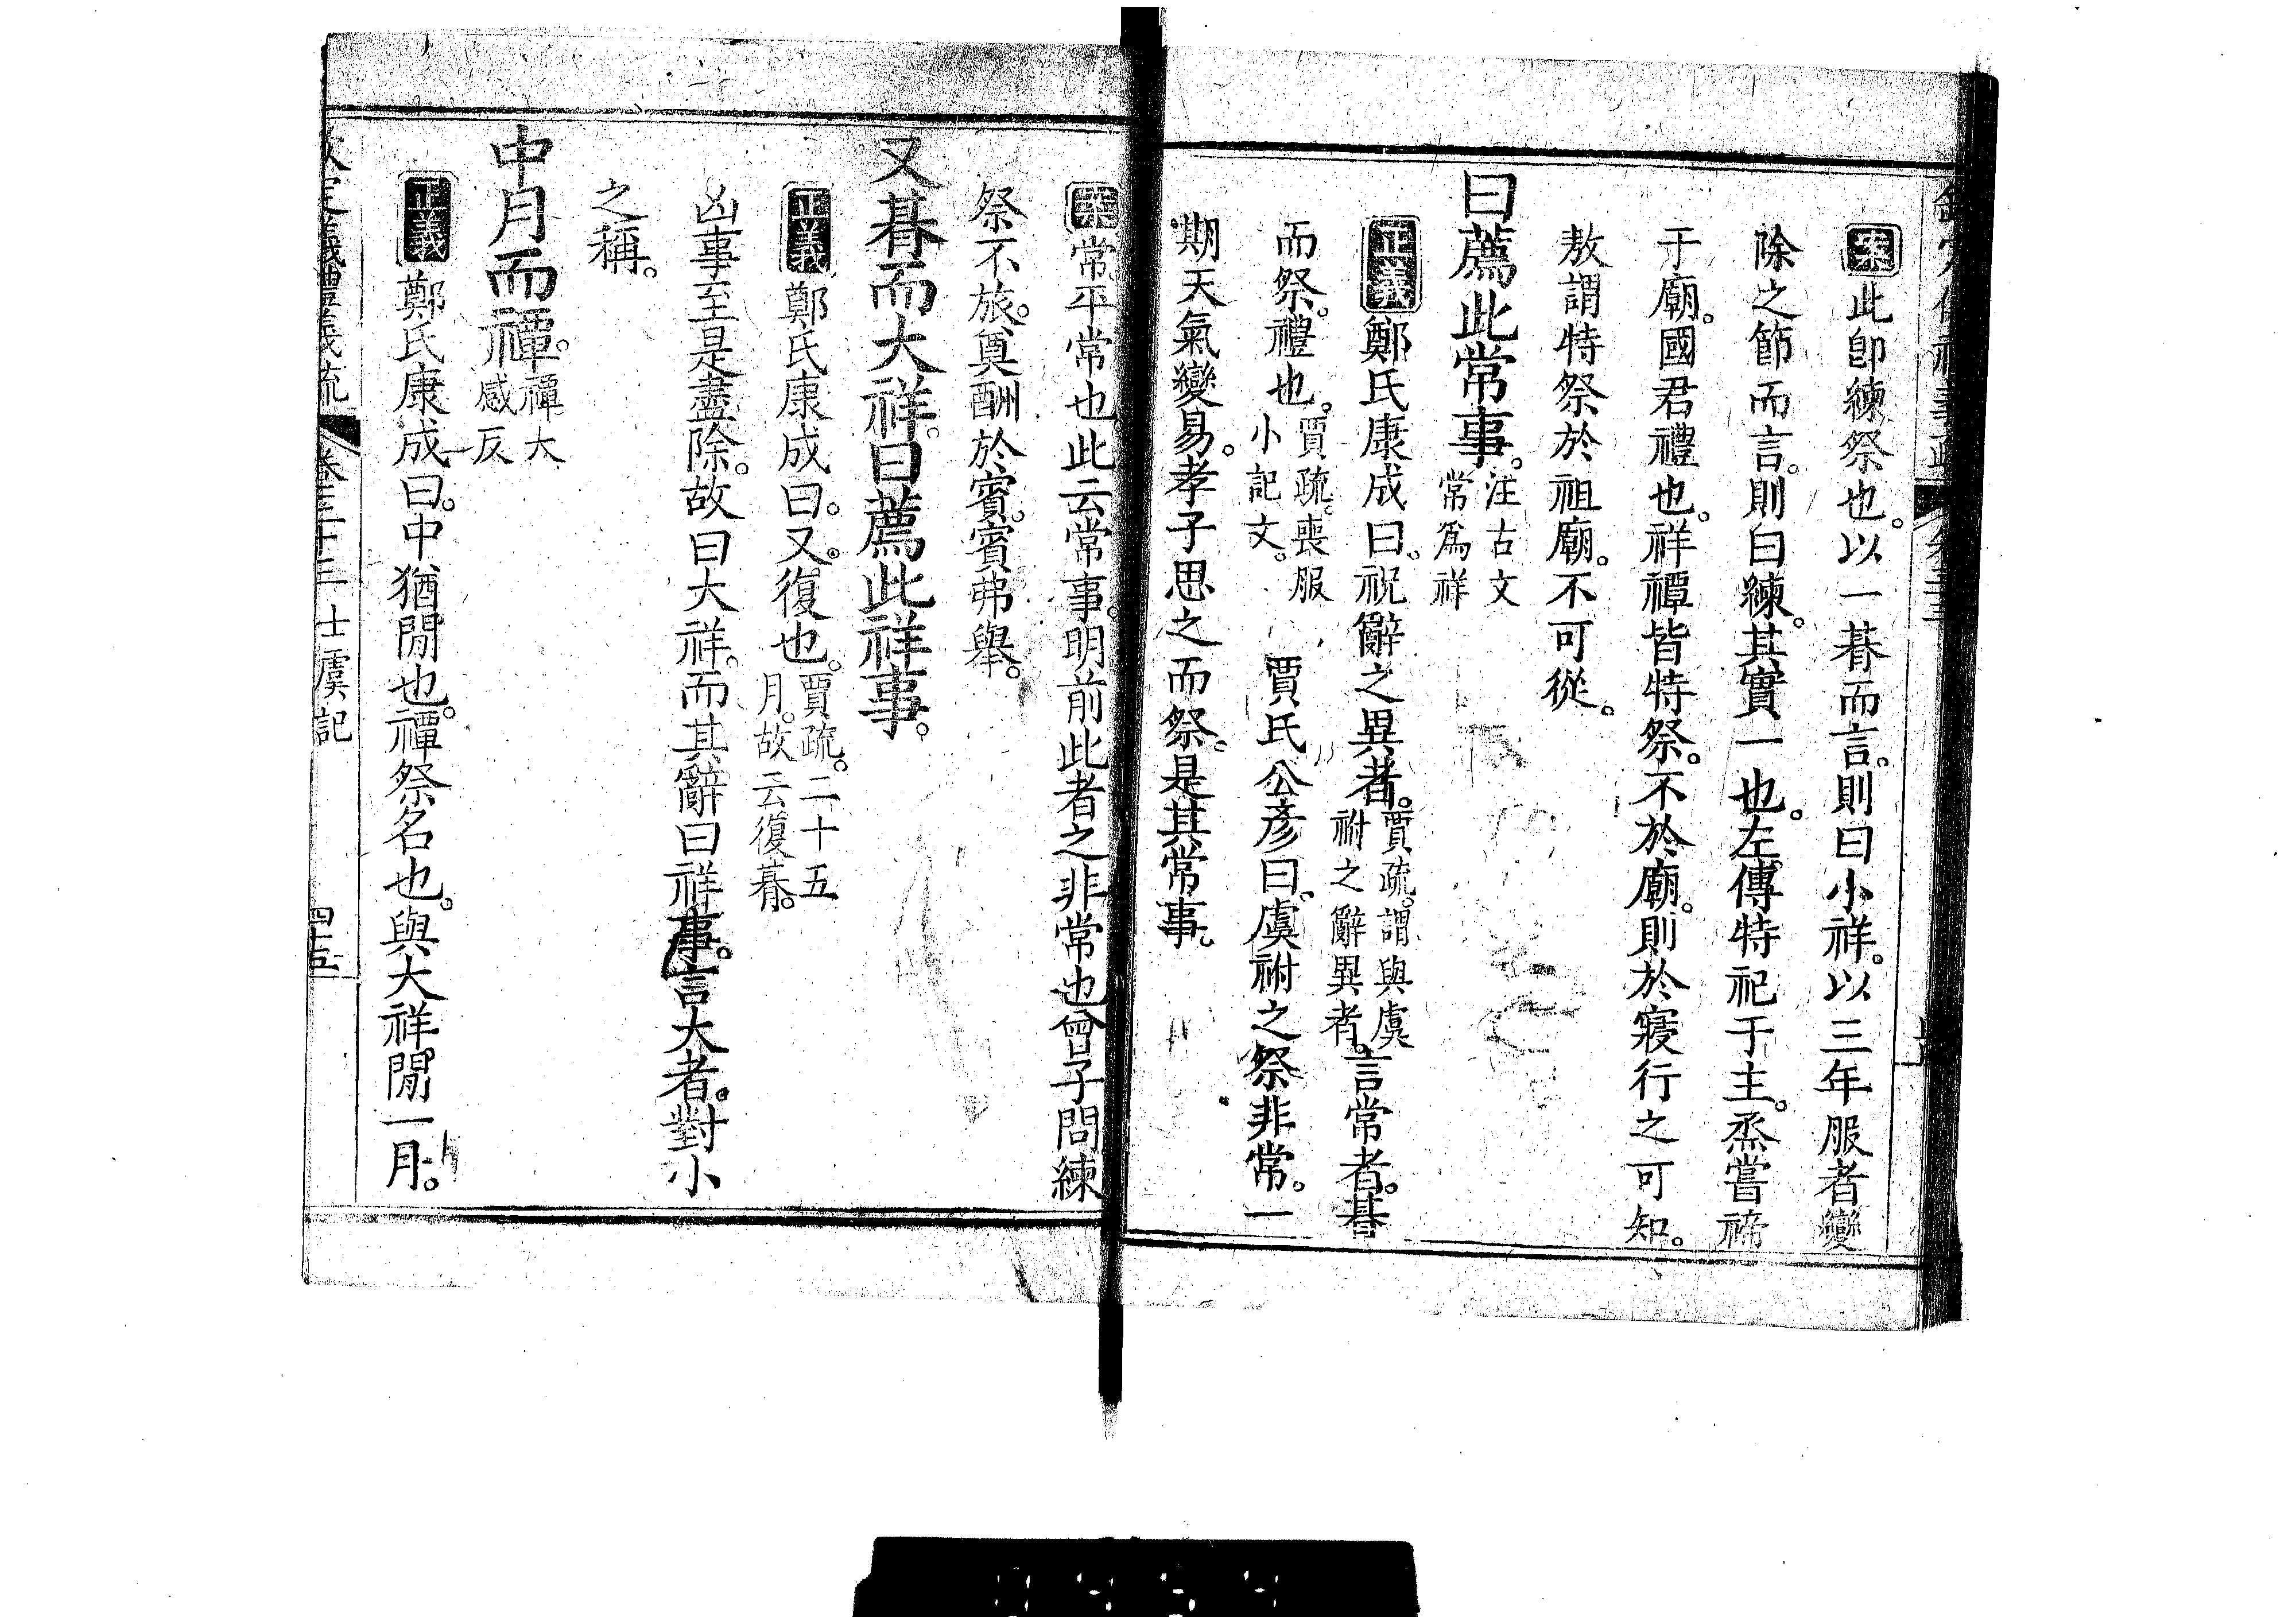 案此卽練祭也。以一朞而言。則曰小祥。以三年服者變
除之節而言。則曰練。其實一也。左傳特祀于主。烝嘗禘
于廟。國君禮也。祥禫皆特祭。不於廟。則於寢行之可知。
敖謂特祭於祖廟。不可從。
曰薦此常事。注古文常爲祥
正義鄭氏康成曰。祝辭之異者。賈疏。謂與虞祔之辭異者。言常者。朞
而祭。禮也。賈疏。喪服小記文。 賈氏公彥曰。虞祔之祭非常。一
期天氣變易。孝子思之而祭。是其常事。
案常平常也。此云常事。明前此者之非常也。曾子問練
祭不旅。奠酬於賓。賓弗舉。
又朞而大祥。曰薦此祥事。
正義鄭氏康成曰。又。復也。賈疏。二十五月。故云復朞。
凶事至是盡除。故曰大祥。而其辭曰祥事。言大者。對小
之稱。
中月而禫。禫大感反
正義鄭氏康成曰。中猶閒也。禫祭名也。與大祥閒一月。
欽定儀禮義疏 卷三十三 士虞記 四五